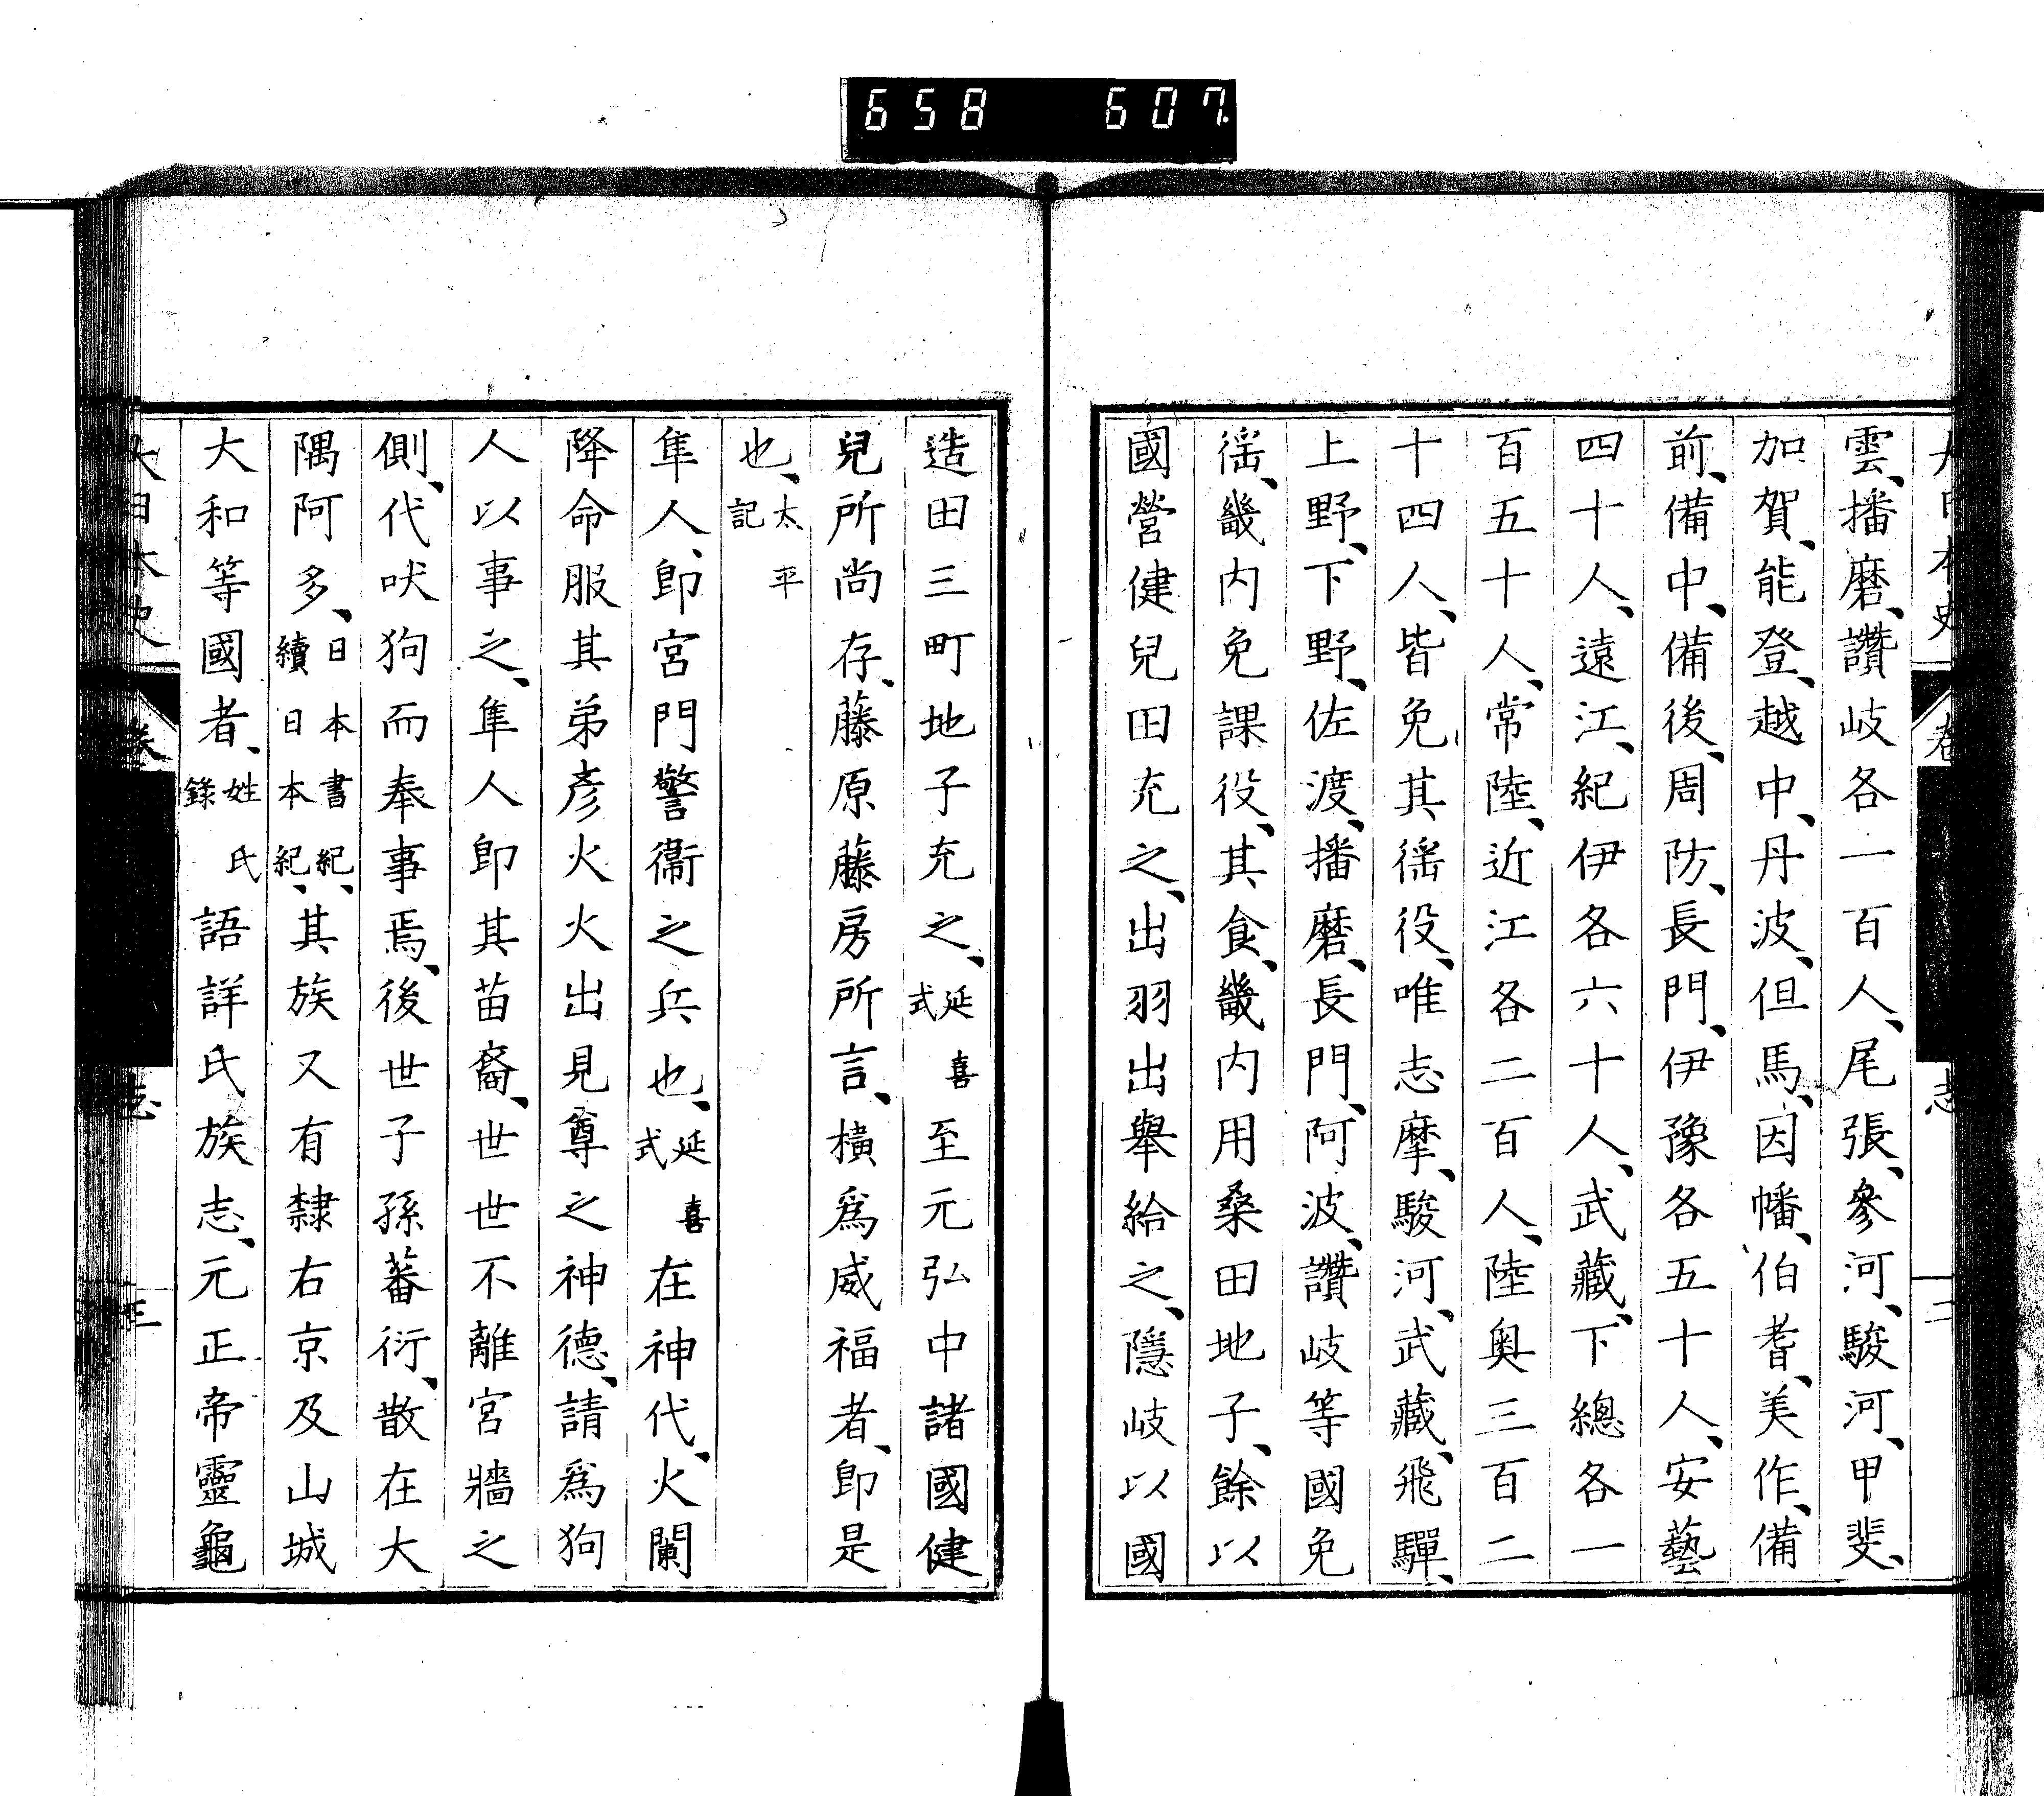 658 607
雲、播磨、讚岐各一百人、尾張、參河、駿河、甲斐、
加賀、能登、越中、丹波、但馬、因幡、伯耆、美作、備
前、備中、備後、周防、長門、伊豫各五十人、安藝
四十人、遠江、紀伊各六十人、武藏、下總各一
百五十人、常陸、近江各二百人、陸奧三百二
十四人、皆免其徭役、唯志摩、駿河、武藏、飛驒、
上野、下野、佐渡、播磨、長門、阿波、讚岐等國免
徭、畿内免課役、其食、畿内用桑田地子、餘以
國營健兒田充之、出羽出舉給之、隱岐以國
造田三町地子充之、延喜式至元弘中諸國健
兒所尚存、藤原藤房所言、橫爲威福者、即是
也、太平記
隼人、即宮門警衞之兵也、延喜式在神代、火闌
降命服其弟彥火火出見尊之神德、請爲狗
人以事之、隼人即其苗裔、世世不離宮牆之
側、代吠狗而奉事焉、後世子孫蕃衍、散在大
隅阿多、日本書紀、續日本紀、其族又有隸右京及山城
大和等國者、姓氏錄語詳氏族志、元正帝靈龜
大日本史 志